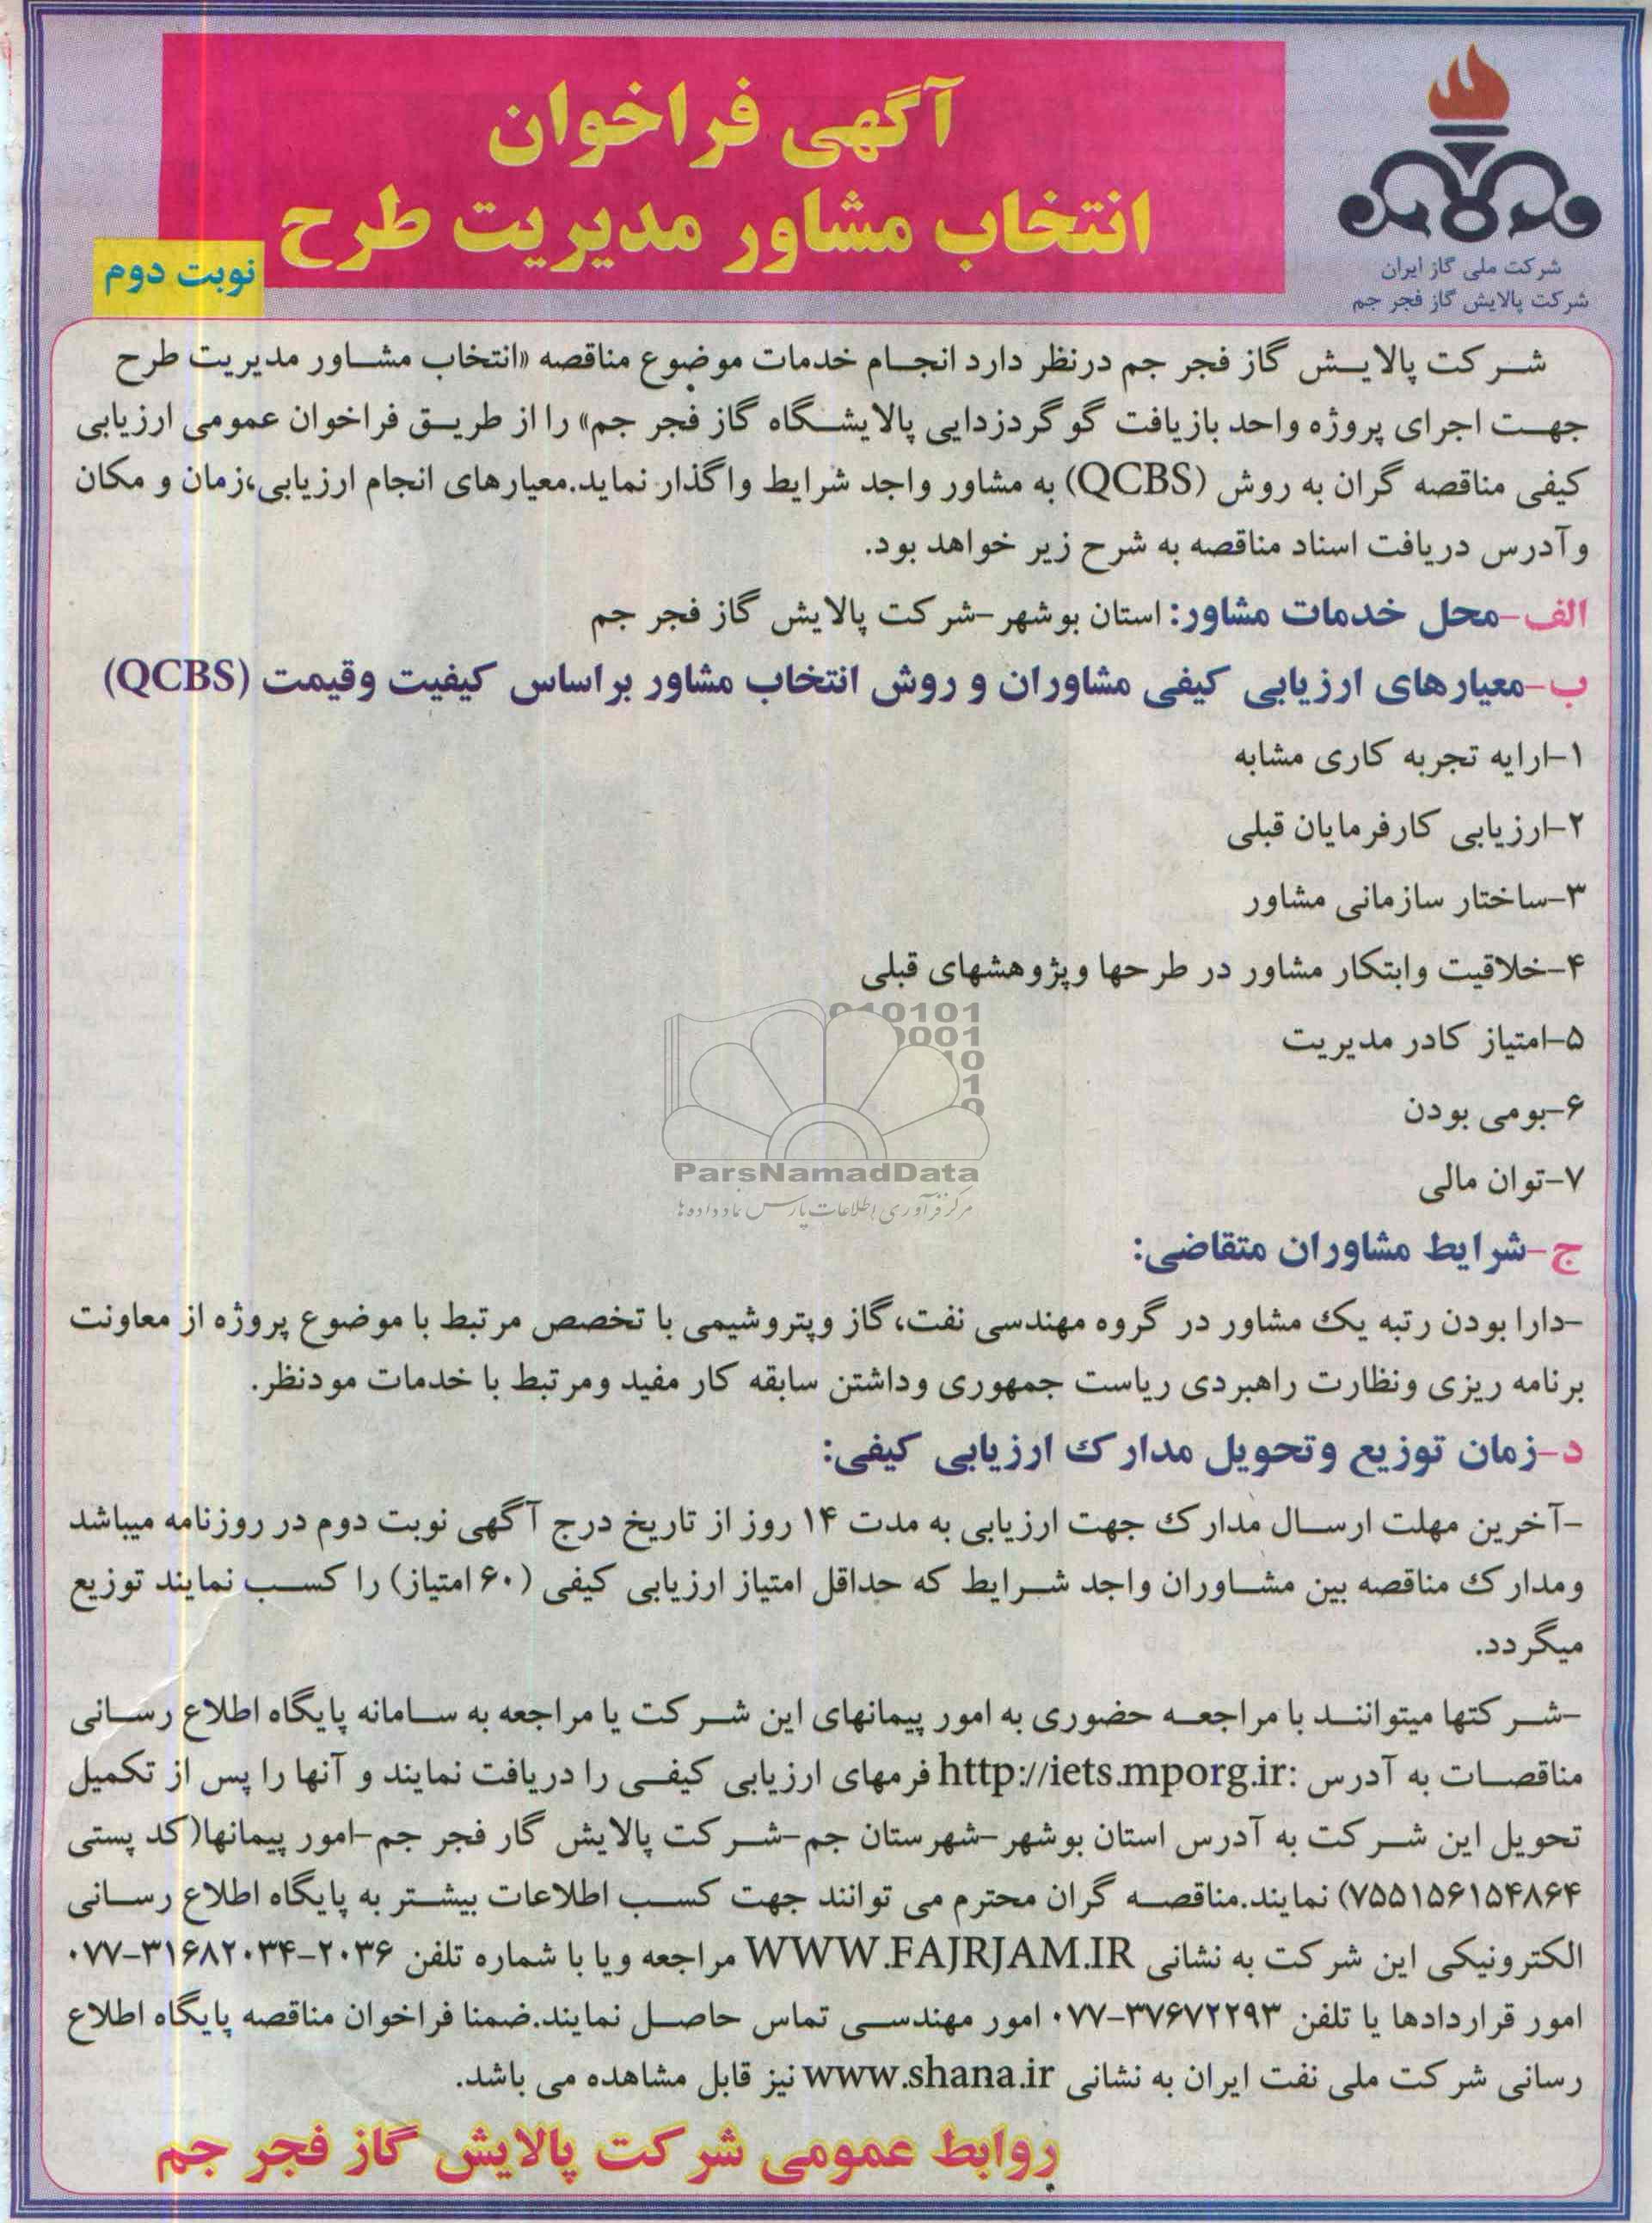 آگهی فراخوان
انتخاب مشاور مدیریت طرح
نوبت دوم
شرکت ملی گاز ایران
شرکت پالایش گاز فجر جم
شرکت پالایش گاز فجر جم درنظر دارد انجام خدمات موضوع مناقصه «انتخاب مشاور مدیریت طرح
جهت اجرای پروژه واحد بازیافت گوگردزدایی پالایشگاه گاز فجر جم» را از طریق فراخوان عمومی ارزیابی
کیفی مناقصه گران به روش (QCBS) به مشاور واجد شرایط واگذار نماید.معیارهای انجام ارزیابی،زمان و مکان
و آدرس دریافت اسناد مناقصه به شرح زیر خواهد بود.
الف-محل خدمات مشاور: استان بوشهر-شرکت پالایش گاز فجر جم
ب-معیارهای ارزیابی کیفی مشاوران و روش انتخاب مشاور براساس کیفیت وقیمت (QCBS)
۱-ارایه تجربه کاری مشابه
۲-ارزیابی کارفرمایان قبلی
۳-ساختار سازمانی مشاور
۴-خلاقیت وابتکار مشاور در طرحها وپژوهشهای قبلی
۵-امتیاز کادر مدیریت
۶-بومی بودن
۷-توان مالی
010101
0001
10
1
0
ParsNamadData
مرکز فرآوری اطلاعات پارس نماد داده ها
ج-شرایط مشاوران متقاضی:
-دارا بودن رتبه یک مشاور در گروه مهندسی نفت،گاز وپتروشیمی با تخصص مرتبط با موضوع پروژه از معاونت
برنامه ریزی ونظارت راهبردی ریاست جمهوری وداشتن سابقه کار مفید ومرتبط با خدمات مودنظر.
د-زمان توزیع وتحویل مدارک ارزیابی کیفی:
-آخرین مهلت ارسال مدارک جهت ارزیابی به مدت ۱۴ روز از تاریخ درج آگهی نوبت دوم در روزنامه میباشد
ومدارک مناقصه بین مشاوران واجد شرایط که حداقل امتیاز ارزیابی کیفی (۶۰ امتیاز) را کسب نمایند توزیع
میگردد.
-شرکتها میتوانند با مراجعه حضوری به امور پیمانهای این شرکت یا مراجعه به سامانه پایگاه اطلاع رسانی
مناقصات به آدرس :http://iets.mporg.ir فرمهای ارزیابی کیفی را دریافت نمایند و آنها را پس از تکمیل
تحویل این شرکت به آدرس استان بوشهر-شهرستان جم-شرکت پالایش گار فجر جم-امور پیمانها(کد پستی
۷۵۵۱۵۶۱۵۴۸۶۴) نمایند.مناقصه گران محترم می توانند جهت کسب اطلاعات بیشتر به پایگاه اطلاع رسانی
الکترونیکی این شرکت به نشانی WWW.FAJRJAM.IR مراجعه ویا با شماره تلفن ۲۰۳۶-۰۷۷-۳۱۶۸۲۰۳۴
امور قراردادها یا تلفن ۳۷۶۷۲۲۹۳-۰۷۷ امور مهندسی تماس حاصل نمایند.ضمنا فراخوان مناقصه پایگاه اطلاع
رسانی شرکت ملی نفت ایران به نشانی www.shana.ir نیز قابل مشاهده می باشد.
روابط عمومی شرکت پالایش گاز فجر جم